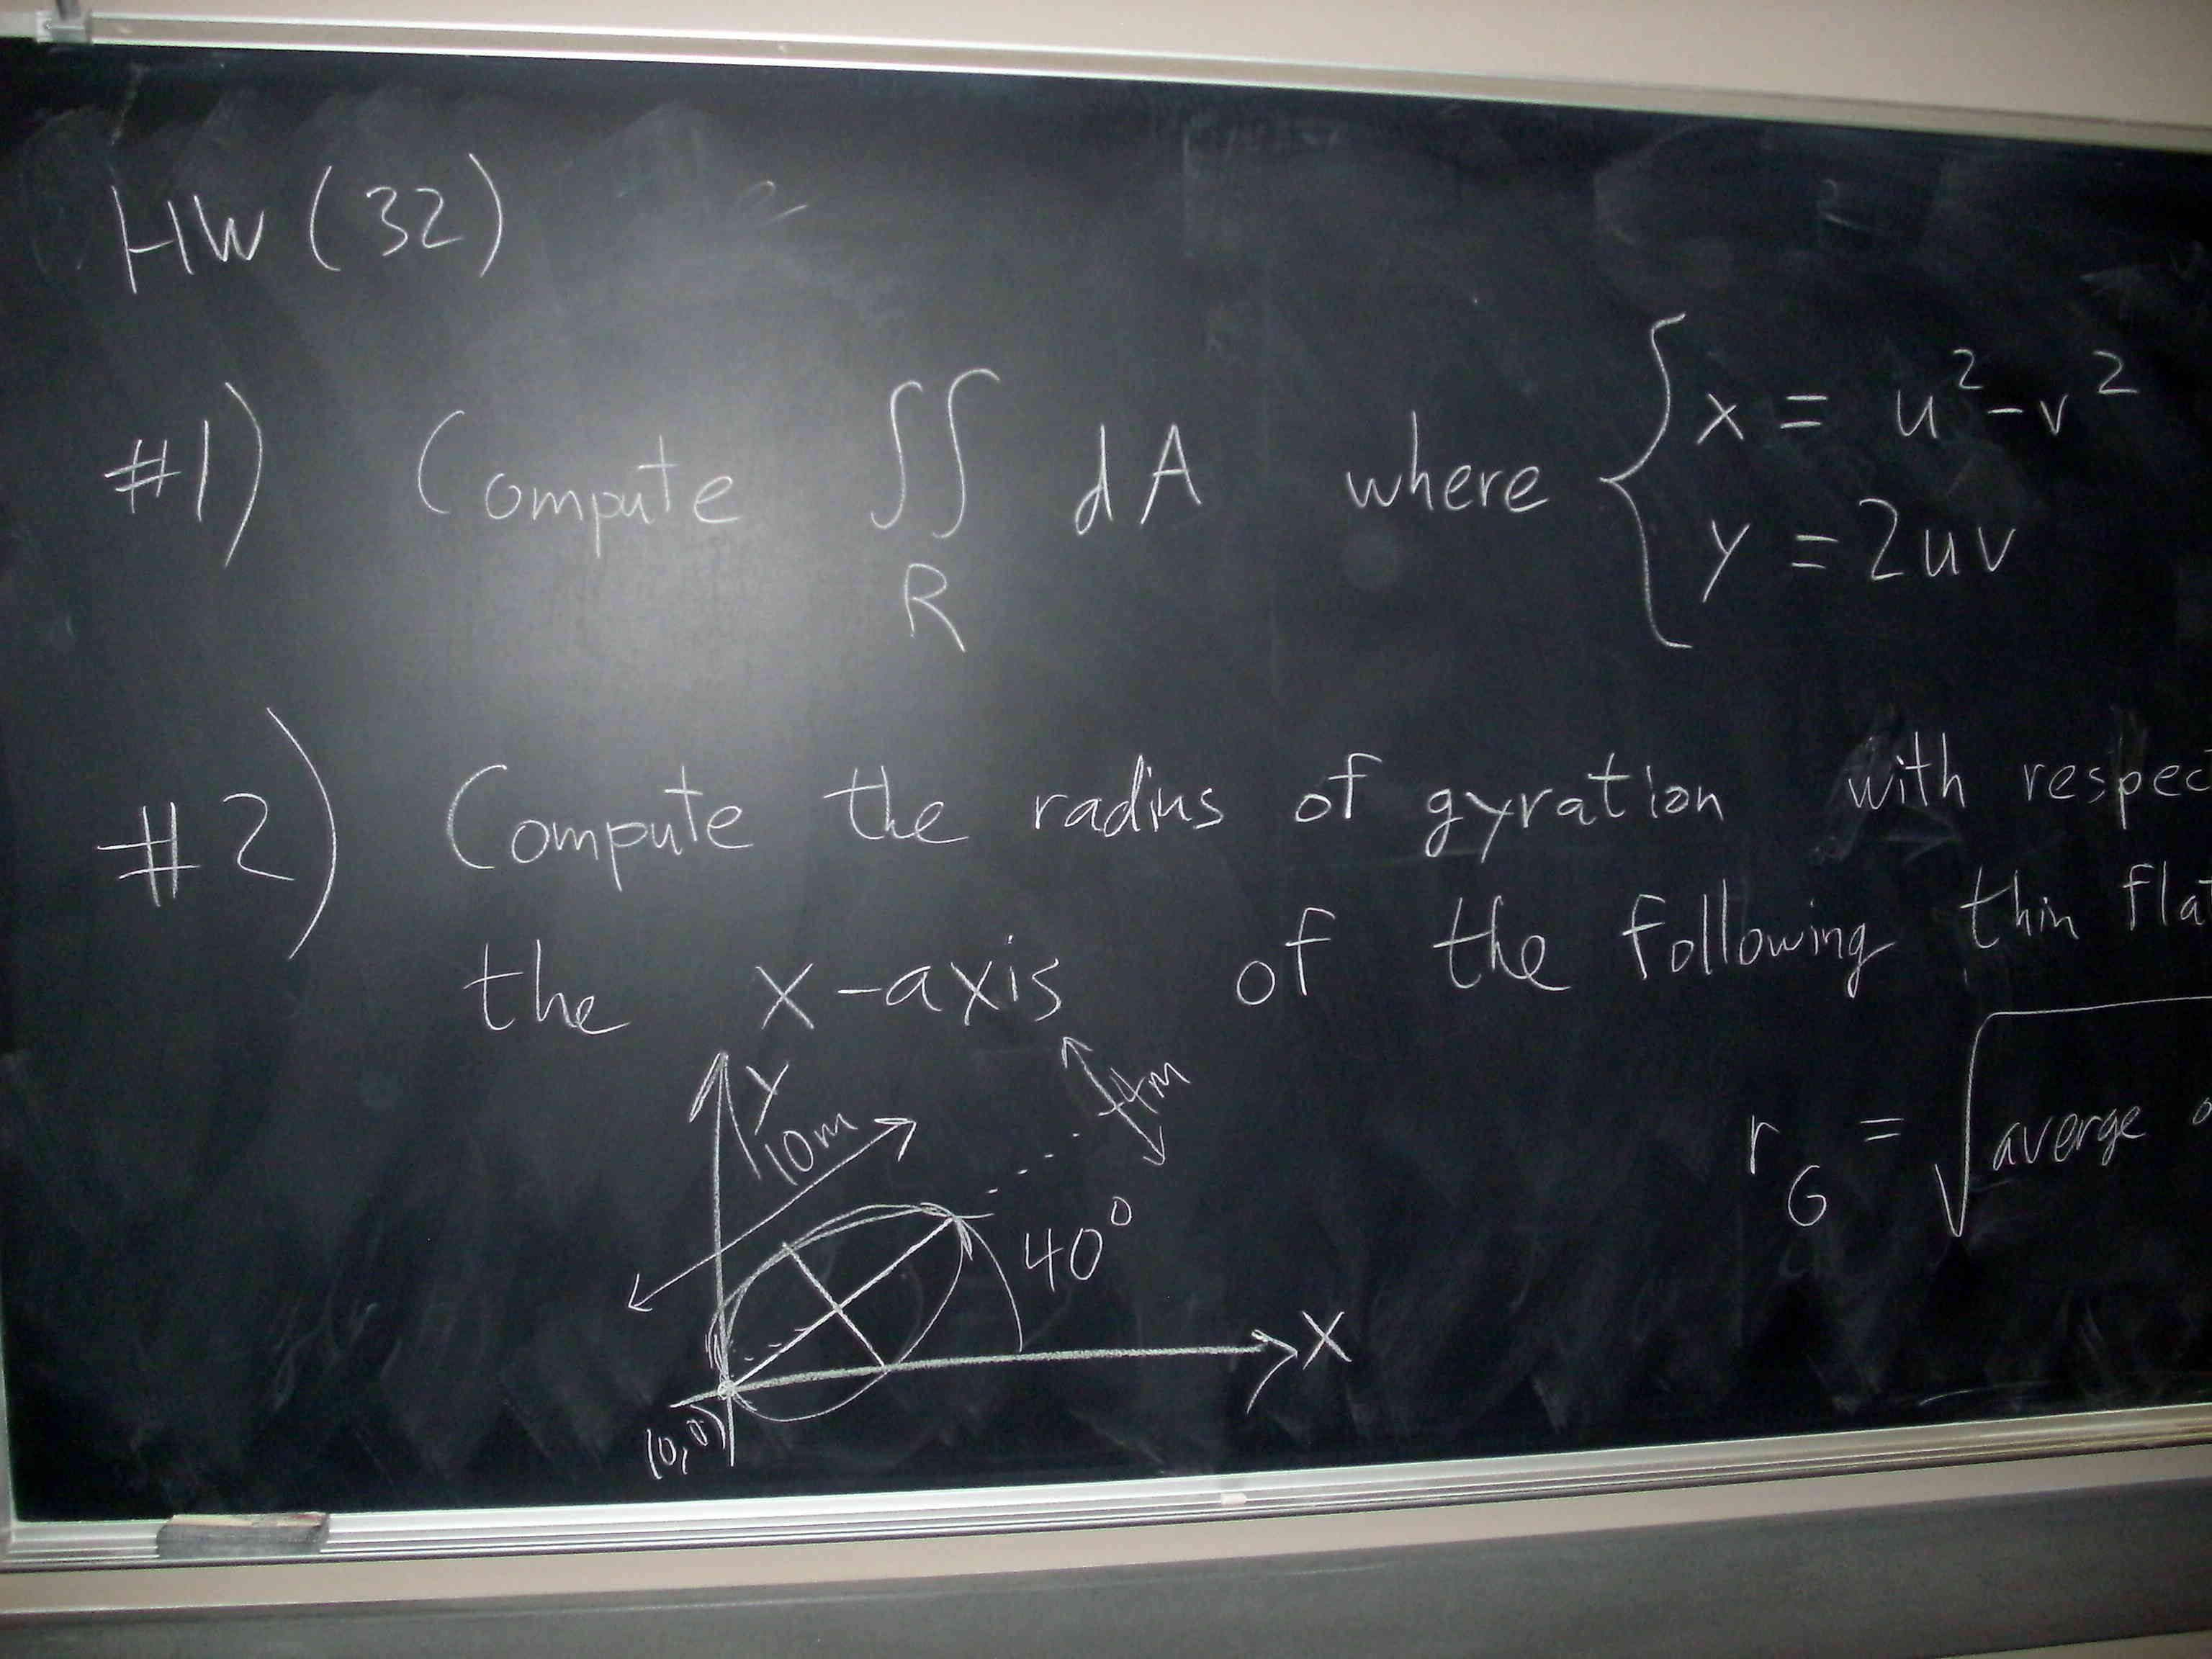 HW (32)
#1) Compute ∬ dA where { x = u² - v²
R
y = 2uv
#2) Compute the radius of gyration with respec
the x-axis of the following thin flat
y
10m
4m
40°
x
(0,0)
r_G = √ average o